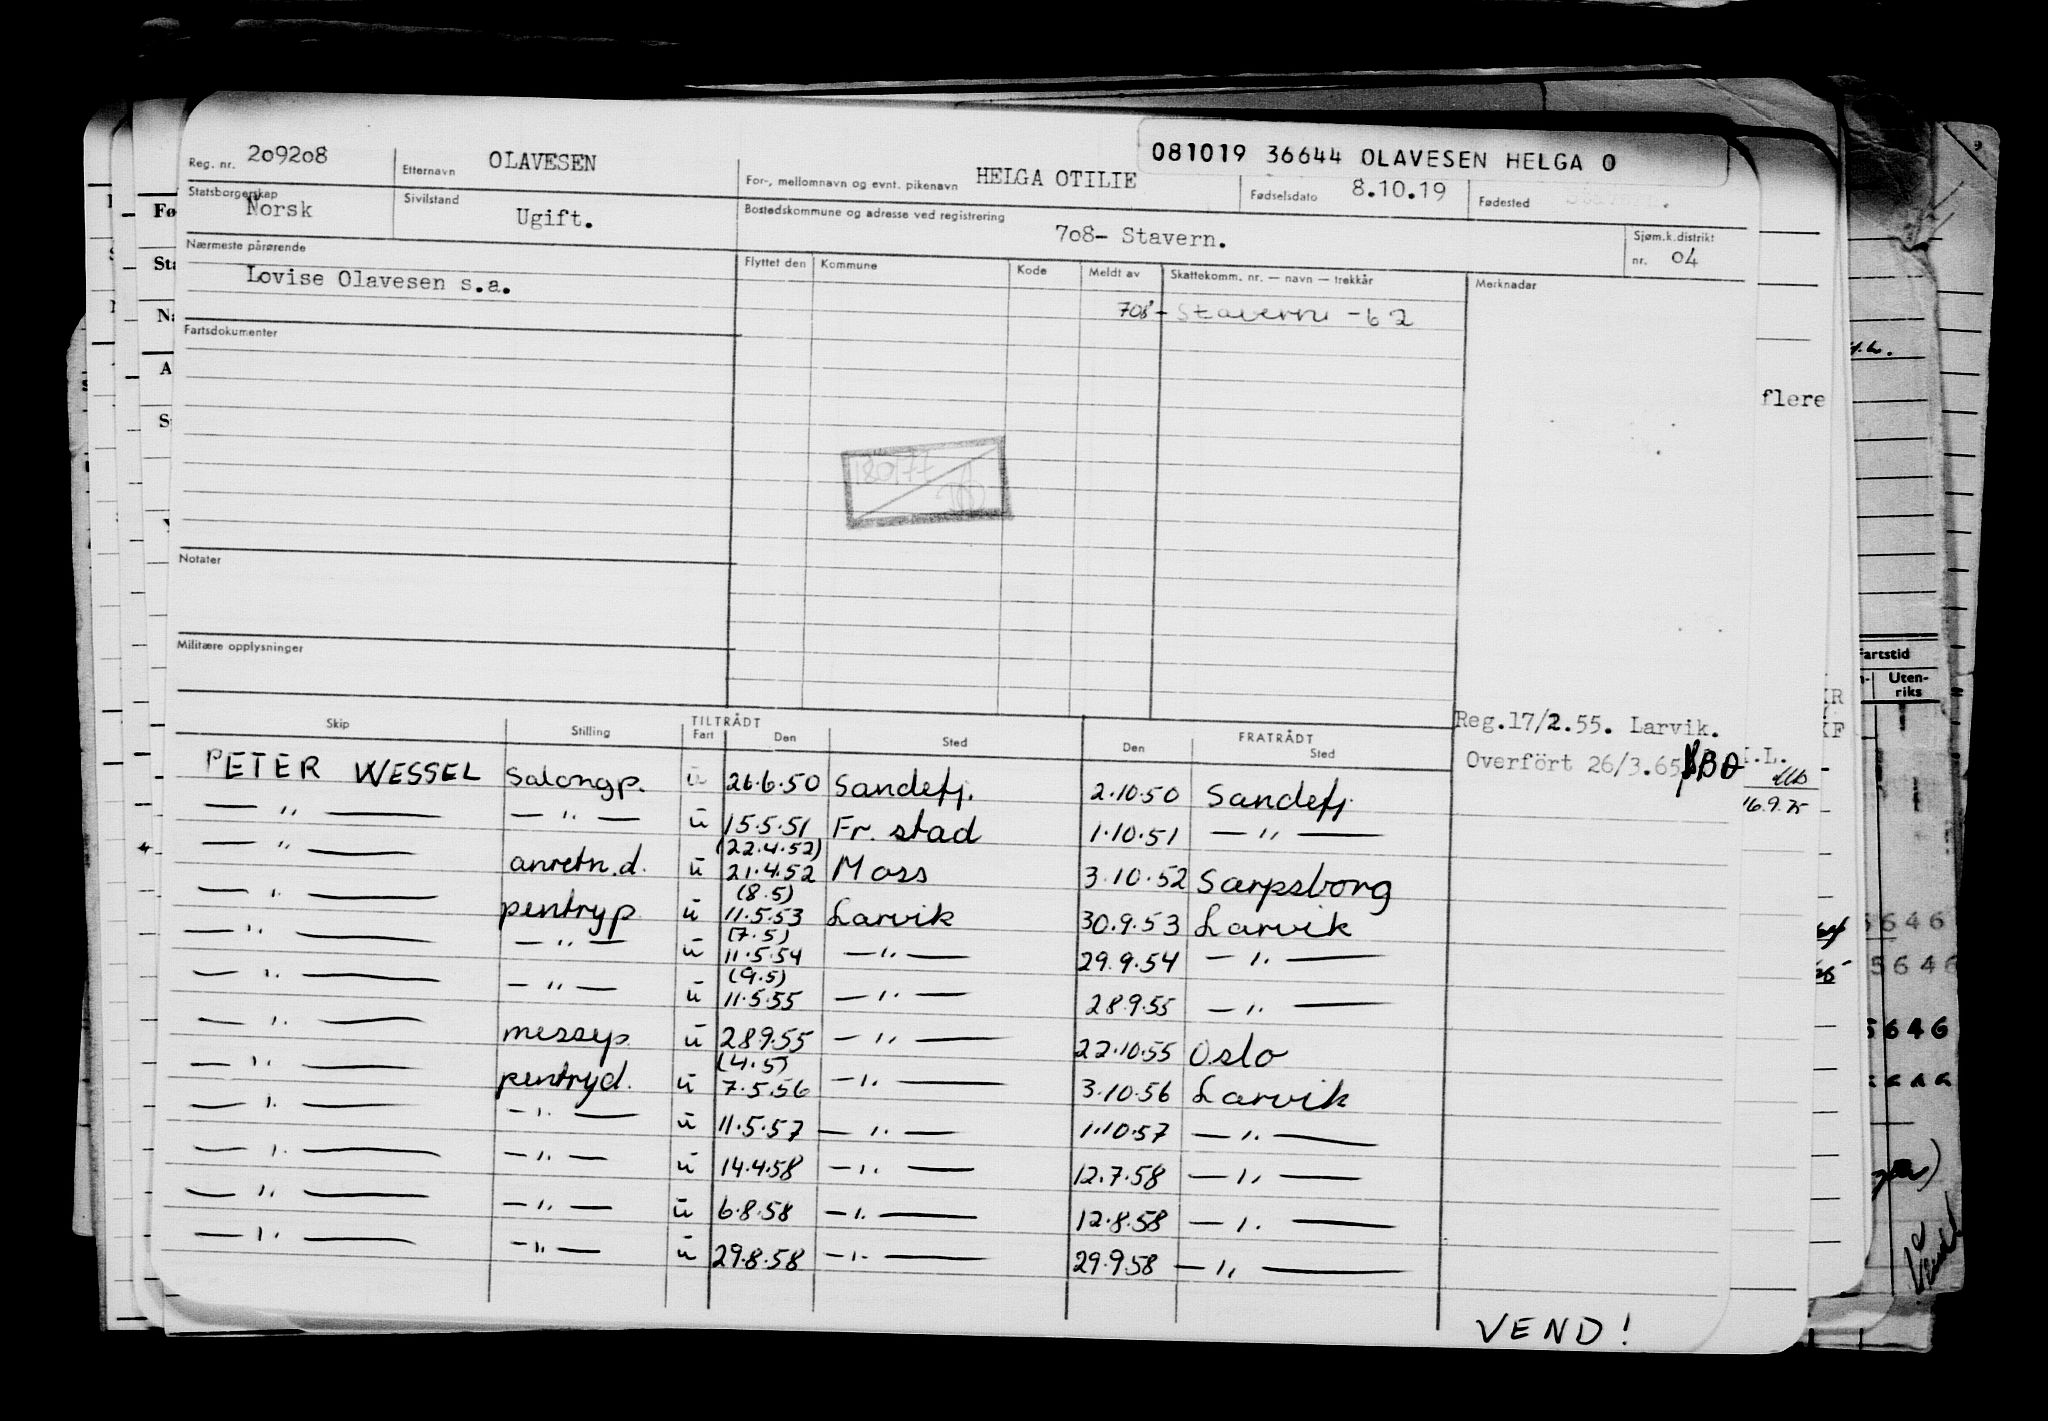 081019 36644 OLAVESEN HELGA O
Reg. nr. 209208 Etternavn OLAVESEN For-, mellomnavn og evnt. pikenavn HELGA OTILIE Fødselsdato 8.10.19 Fødested Stavern.
Statsborgerskap Norsk Sivilstand Ugift. Bostedskommune og adresse ved registrering 708- Stavern. Sjøm.k.distrikt nr. 04
Nærmeste pårørende Flyttet den Kommune Kode Meldt av Skattekomm. nr. — navn — trekkår Merknader
Lovise Olavesen s.a.
708- Stavern -62
Fartsdokumenter
flere
Notater
Militære opplysninger
Fartstid
Uten-
riks
Reg.17/2.55. Larvik.
Overfört 26/3.65
16.9.75
Skip Stilling TILTRÅDT Fart Den Sted FRATRÅDT Den Sted
PETER WESSEL Salongp. ū 26.6.50 Sandefj. 2.10.50 Sandefj.
— " — — " — ū 15.5.51 Fr. stad 1.10.51 — " —
(22.4.52)
— " — anretn.d. ū 21.4.52 Moss 3.10.52 Sarpsborg
(8.5)
— " — pentryp ū 11.5.53 Larvik 30.9.53 Larvik
(7.5)
— " — — " — ū 11.5.54 — " — 29.9.54 — " —
(9.5)
— " — — " — ū 11.5.55 — " — 28.9.55 — " —
— " — messep. ū 28.9.55 — " — 22.10.55 Oslo
(4.5)
— " — pentryd. ū 7.5.56 — " — 3.10.56 Larvik
— " — — " — ū 11.5.57 — " — 1.10.57 — " —
— " — — " — ū 14.4.58 — " — 12.7.58 — " —
— " — — " — ū 6.8.58 — " — 12.8.58 — " —
— " — — " — ū 29.8.58 — " — 29.9.58 — " —
VEND!